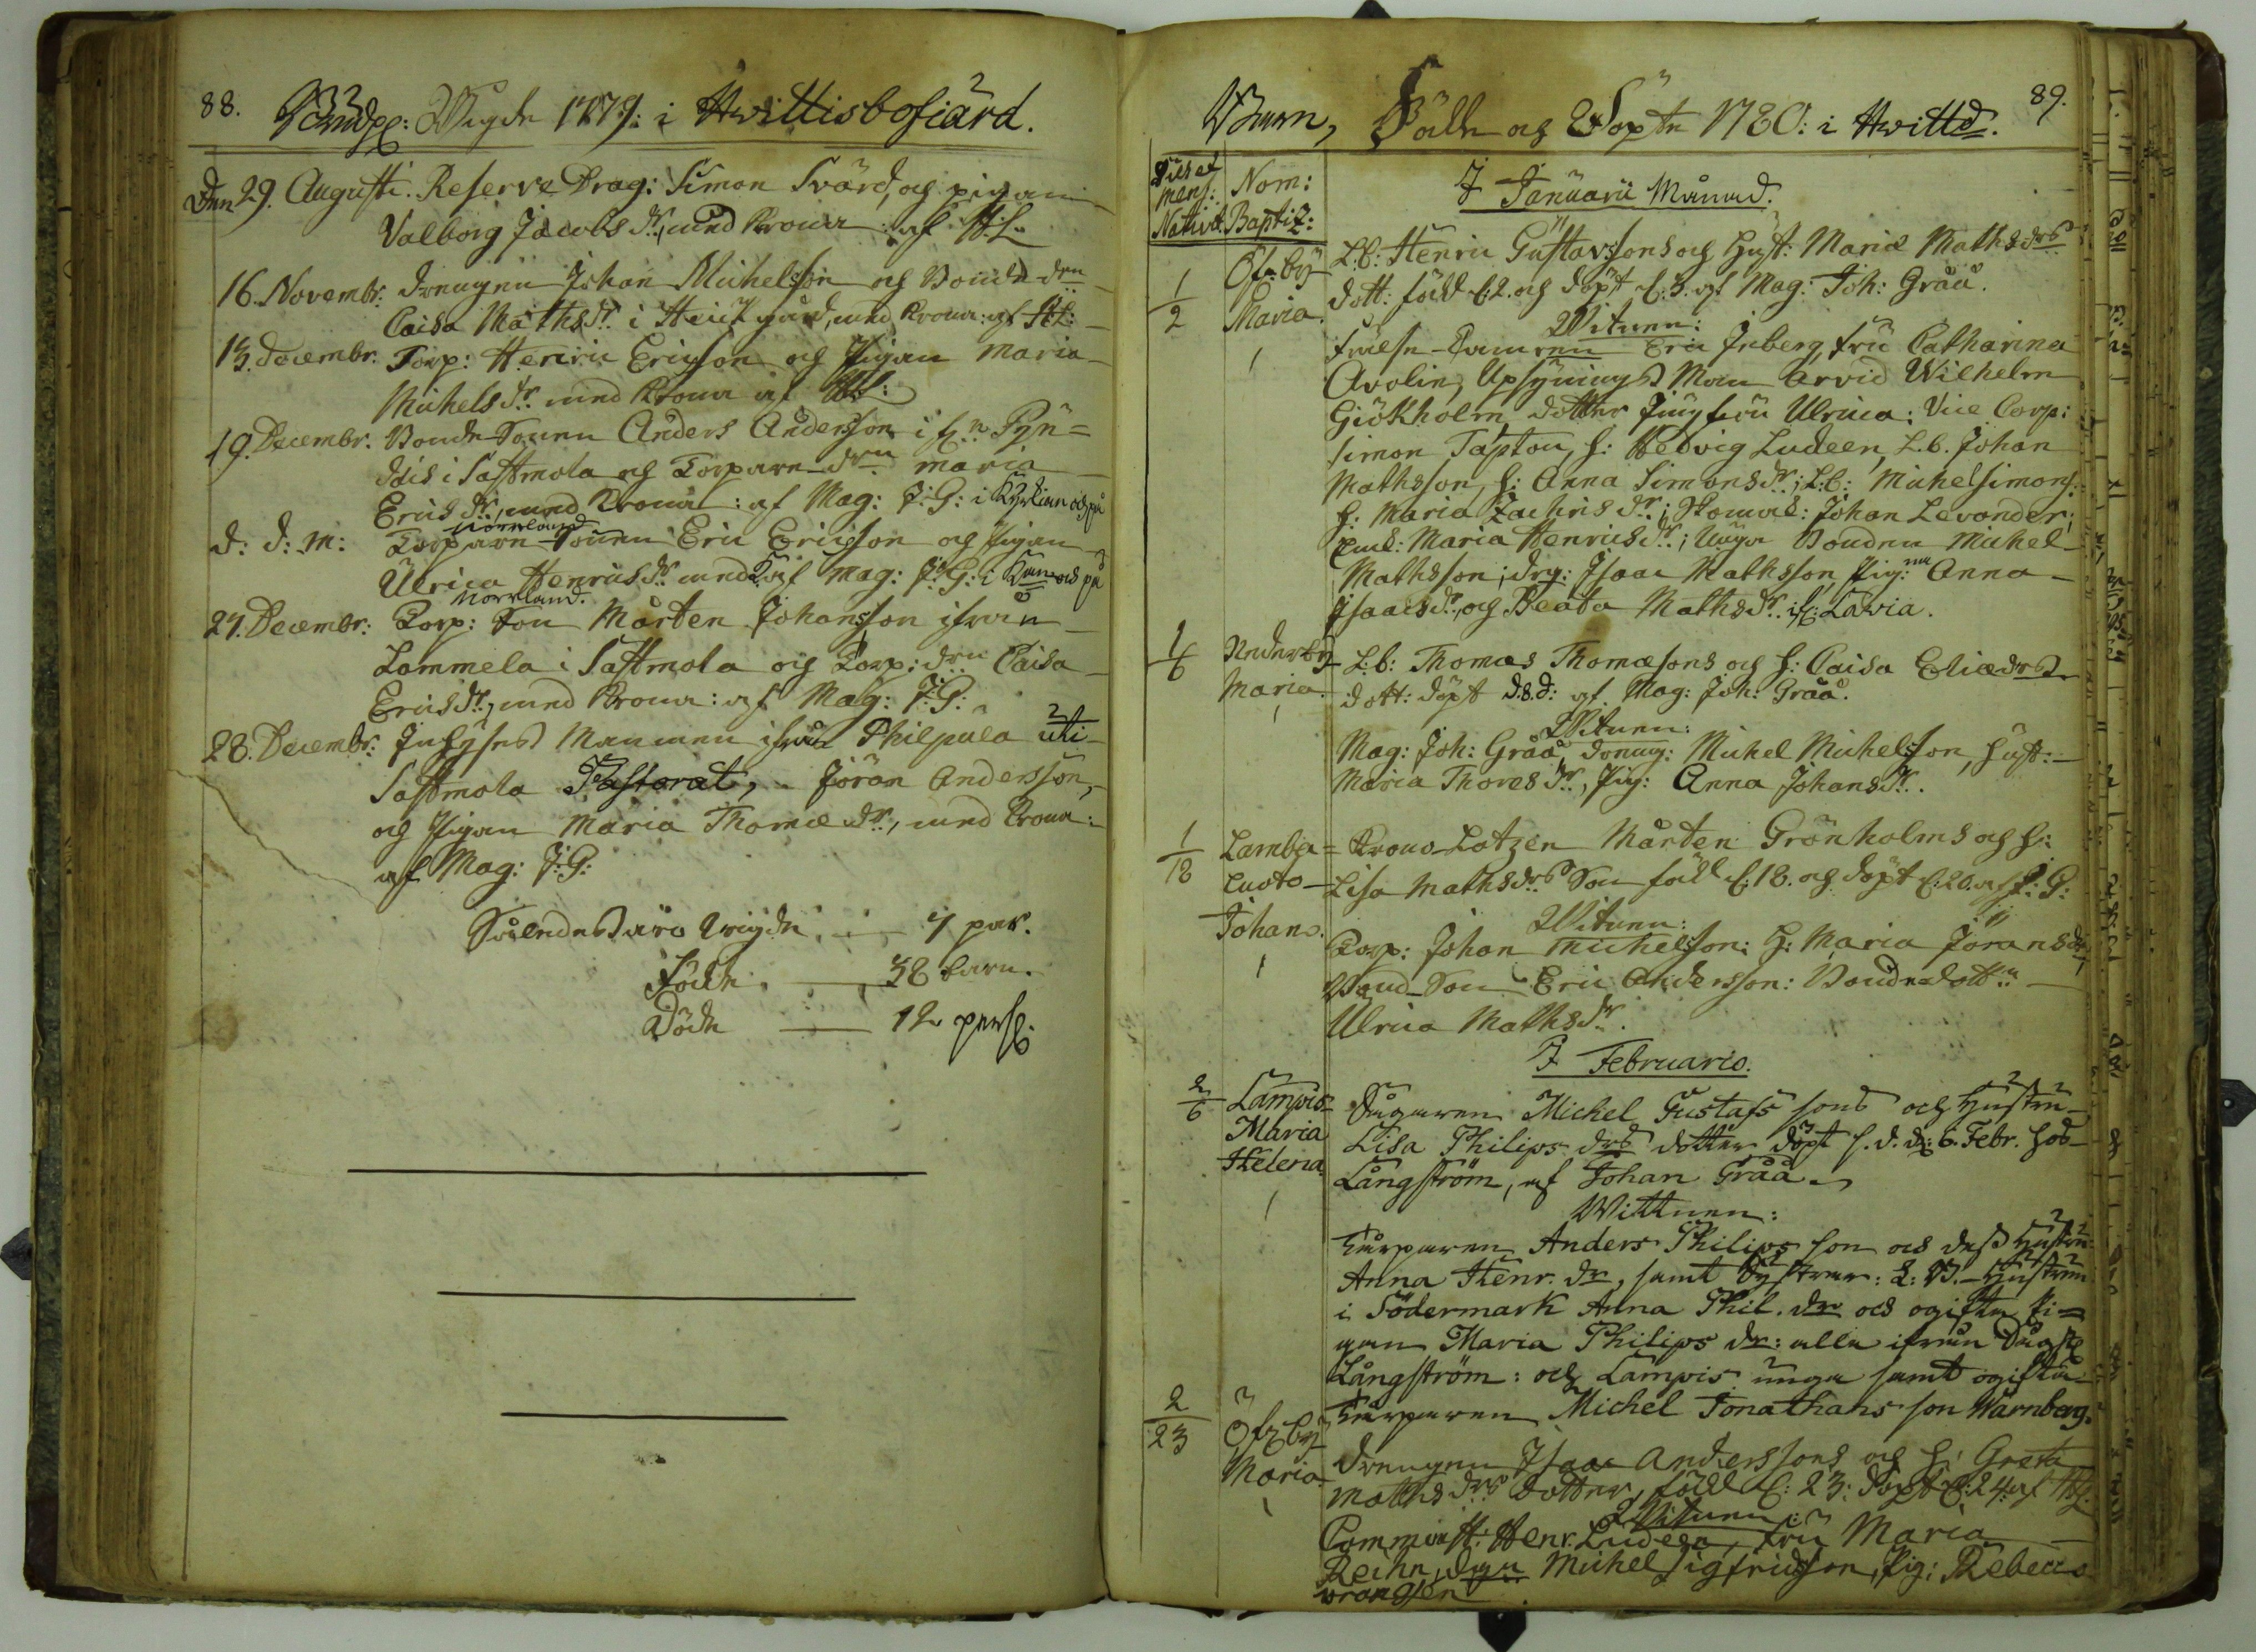 88.
Wigde 1779: i Hwittisbofiärd.
Den 29. Augusti. Reserve Drag: Simon Svärd, og pigan
Valborg Jacobs dr, med Krona: af H:L:
16. Novembr. drengen Johan Michelsson og Bonde-drn
Caisa Mathsdr i Heickgård, med Krona: af HL:
13. Decembr. Torp: Henric Ericsson og Pigan Maria
Michelsdr. med Krona af HL:
19. Decembr. Bonde-Sonen Anders Andersson i
i Sastmola og Torpare-drn Maria
Ericsdr, med Krona: af Mag: J:G: i Kyrkian och på
Norrland
d: d: m: Torpare-Sonen Eric Ericsson og Pigan
Ulrica Henricsdr med K: af Mag: J:G: i och på
Norrland.
27. Decembr: Torp: Son Mårten Johansson ifrån
Lammela i Sastmola og Torp: drn Caisa
Ericsdr, med Krona: af Mag: J:G:
28. Decembr: Inhyses Mannen ifrån Philpula uti
Sastmola Pastorat, Jöran Andersson,
og Pigan Maria Thomædr, med Krona:
af Mag: J:G:
Således äro Wigde, — 7 par.
Födde, — 38 barn.
Döde — 12 pers:
89.
Barn, Födde og Döpte 1780: i Hwittb.
Dies et
Mens:
Nativit.
Nom:
Baptiz:
I Januarii Månad.
1/2
Öfr:by
Maria
L:b: Henric Gustavssons og Hust: Mariæ Mathsdrs
dott: född d:2. og döpt d:3. af Mag: Joh: Gråå.
Witnen:
Eric Inberg, fru Catharina
Avolin, Upsyningsman Arvid Wilhelm
Giökholm, dotter Jungfru Ulrica: Vice Corp:
Simon Tapton, h: Hedvig Ludeen, L.b. Johan
Mathsson, h: Anna Simonsdr; L:b: Michel Simons:
h: Maria Zachrisdr; Johan Levander;
Maria Henricsdr; Unga Bonden Michel
Mathsson; drg: Isaac Mathsson, Pig:na Anna
Isaacsdr, og Beata Mathsdr i Lavia.
1/6
Nederby
Maria
L:b: Thomas Thomæsons og h: Caisa Eliædrs
dott: döpt d.8.d: af Mag: Joh: Gråå.
Witnen:
Mag: Joh: Gråå, dreng: Michel Michelsson, hust:
Maria Thomasdr, Pig: Anna Johansdr.
1/18
Lamba=
luoto
Johan.
Krono-Lotzen Mårten Grönholms og h:
Lisa Mathsdrs Son född d:18. og döpt d:20. af J:G:
Witnen:
Torp: Johan Michelsson: H: Maria Jöransdr,
Bond-Son Eric Andersson: Bondedott:n
Ulrica Mathsdr.
I Februario.
2/6
Lampis
Maria
Helena
Michel Gustafs sons och Hustru
Lisa Philips drs dotter döpt s.d. d: 6. Febr. hos
Långström, af Johan Gråå.
Wittnen:
Torparen Anders Philips son och dess Hustru
Anna Henr. dr, samt Systrar: L: B. Hustrun
i Södermark Anna Phil. dr och ogifta Pi=
gan Maria Philips dr: alla ifrån
Långström: och Lampis unga samt ogifta
Torparen Michel Jonathans son Warnberg.
2/23
Öfr:by
Maria
Drengen Isaac Anderssons og h: Greta
Mathsdrs dotter, född d: 23: döpt d:24. af HL.
Witnen:
Comminist: Henr. Ludeen, fru Maria
Reihn, drgn Michel Sigfridsson, Pig: Rebecca